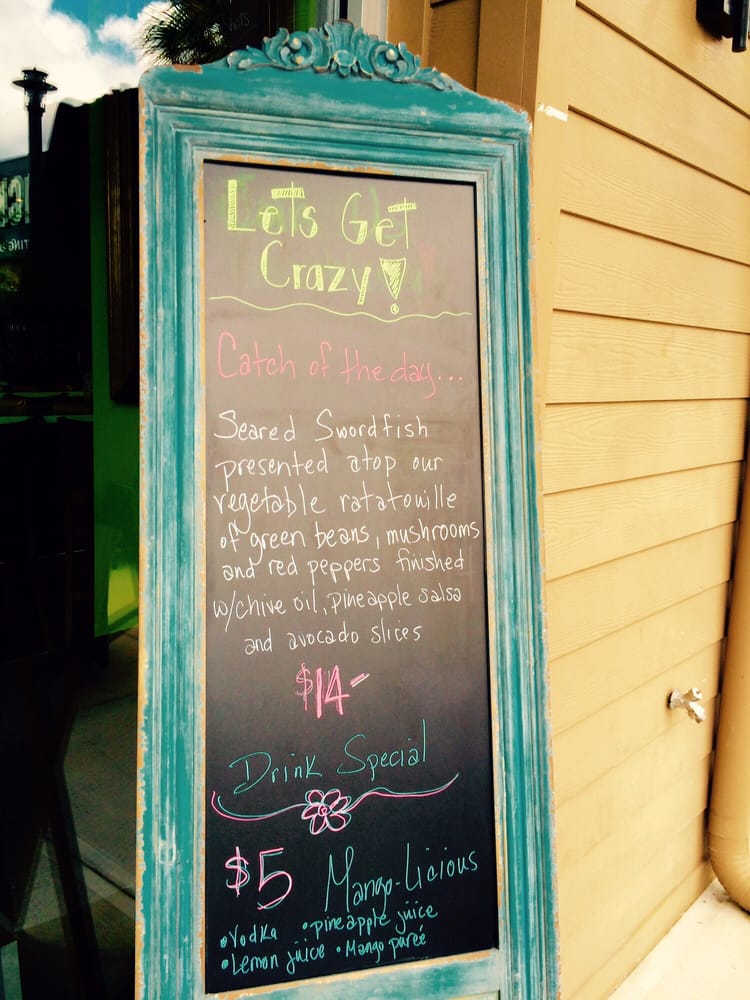 Lets Get
Crazy!
Catch of the day...
Seared Swordfish
presented atop our
vegetable ratatouille
of green beans, mushrooms
and red peppers finished
w/chive oil, pineapple salsa
and avocado slices
$14-
Drink Special
$5 Mango-Licious
• Vodka • pineapple juice
• Lemon juice • Mango pureé